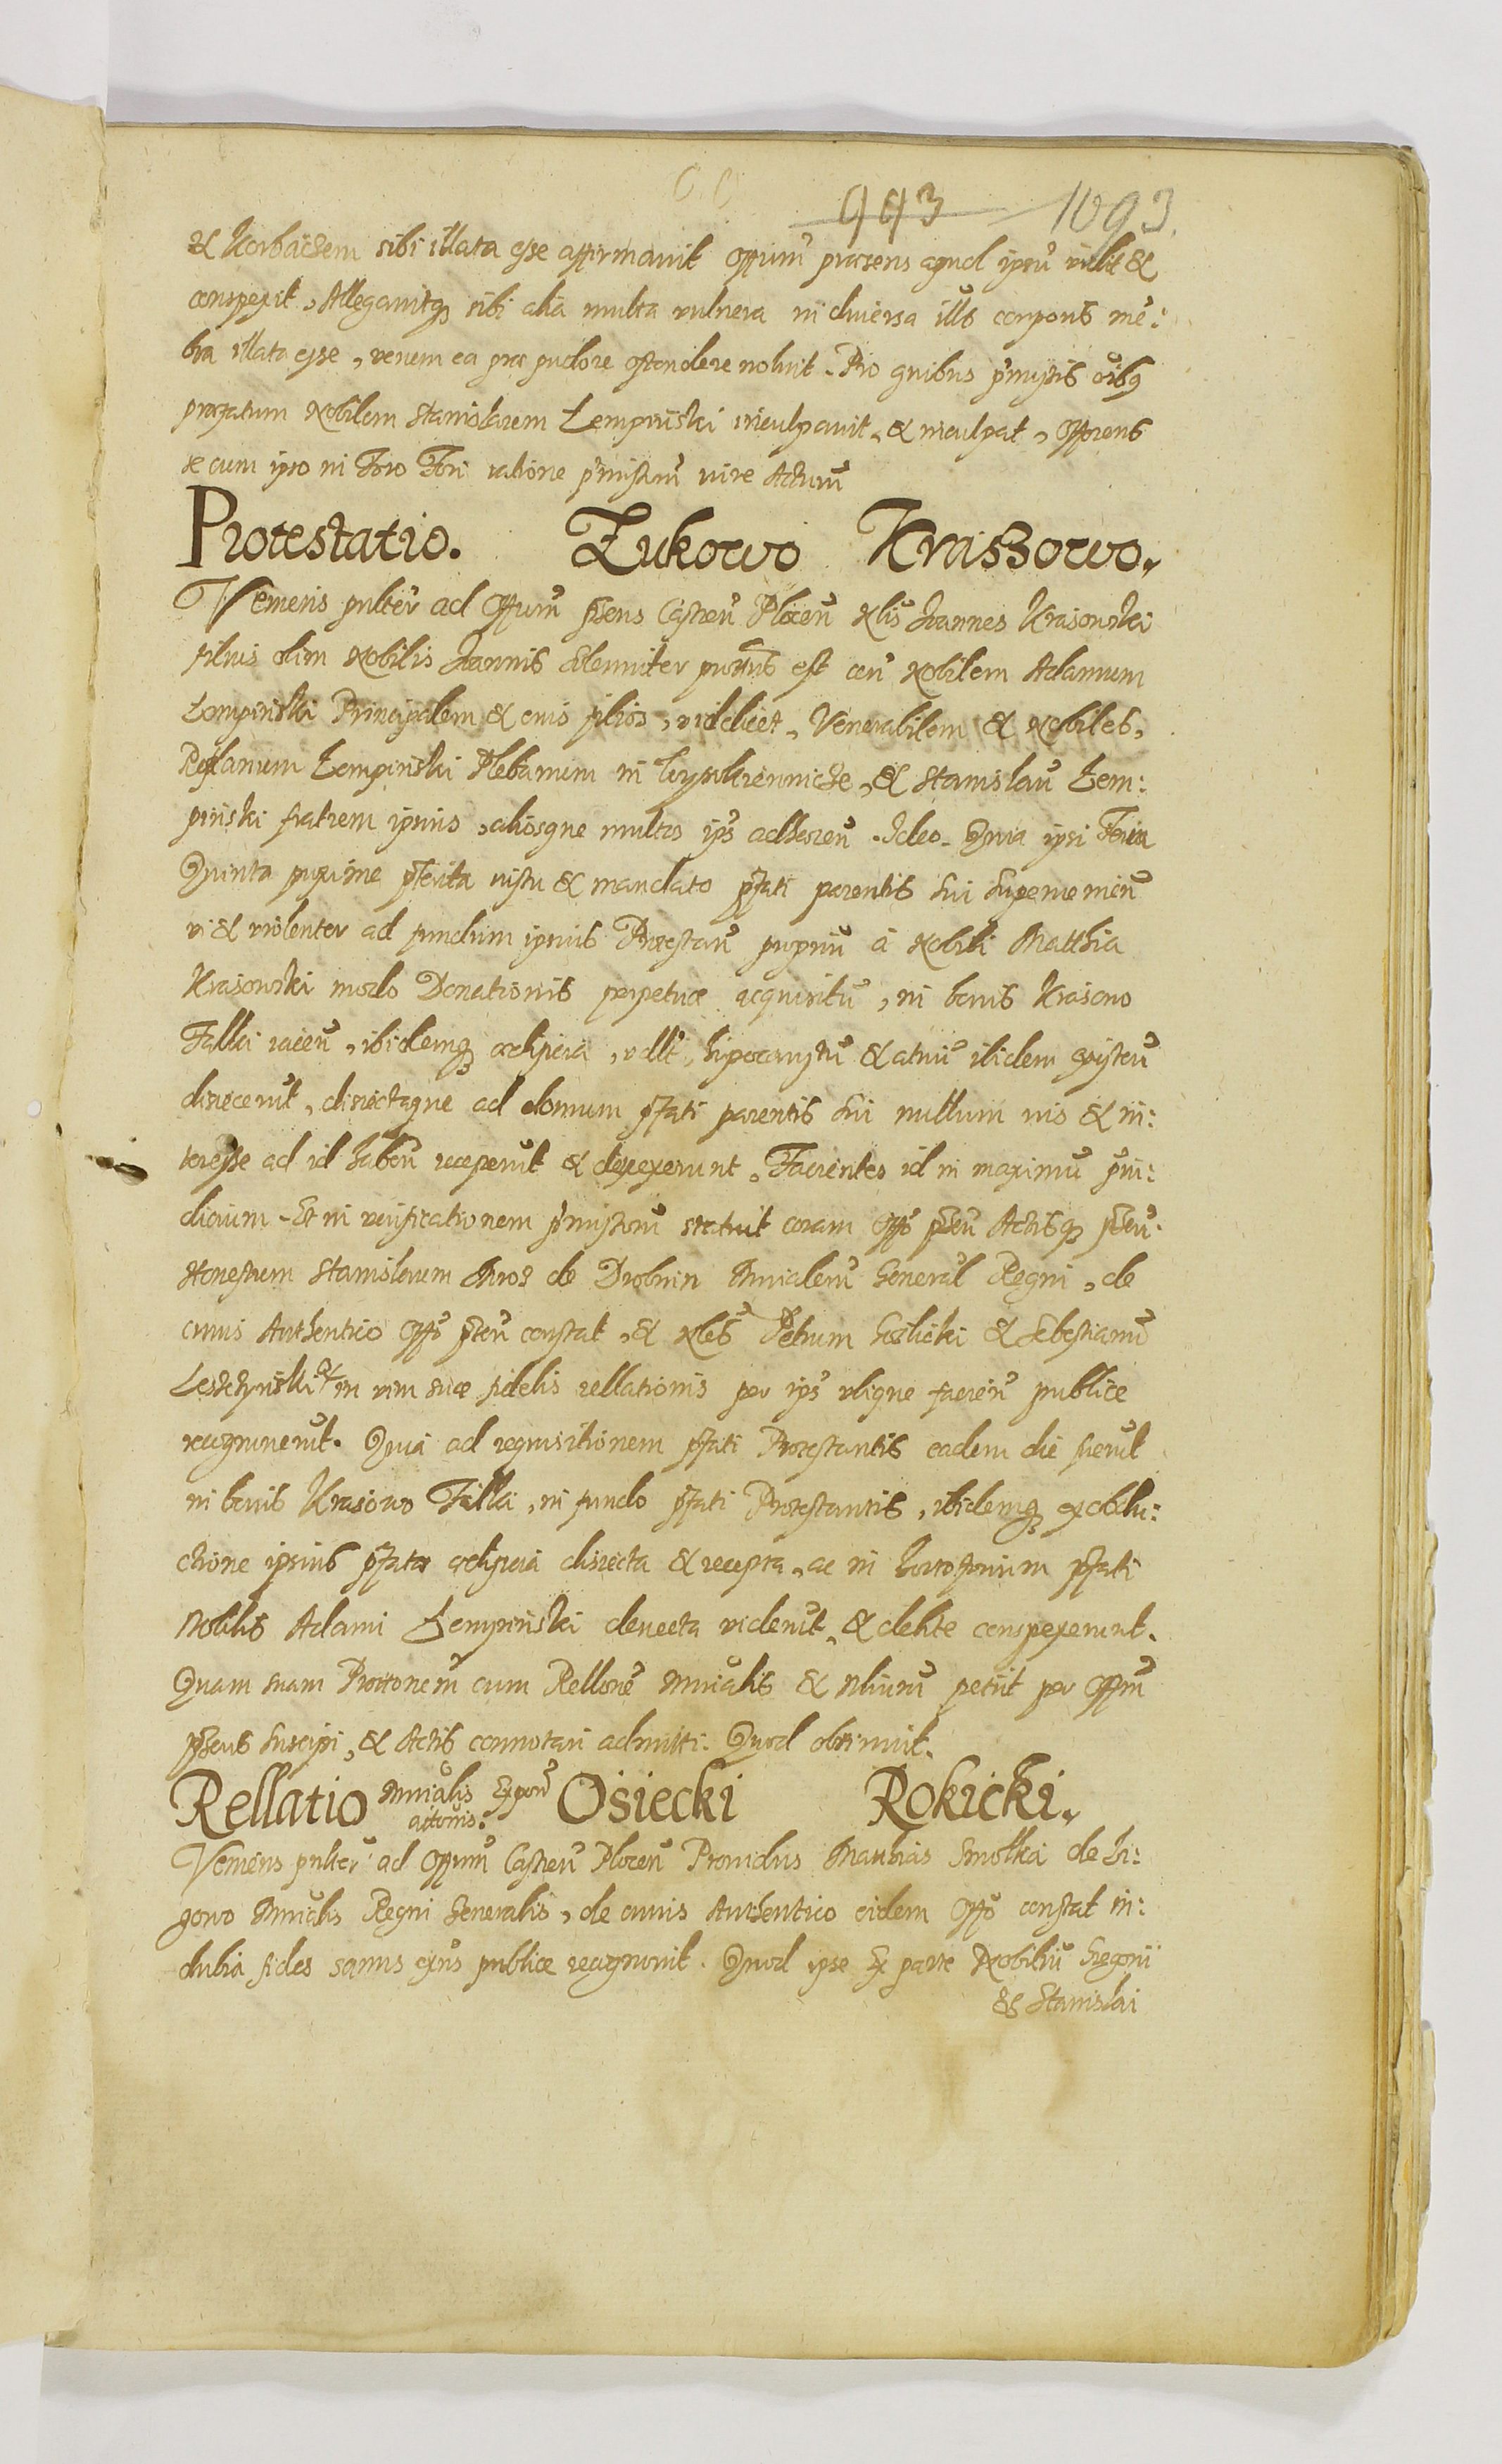 993 1093.
& Korbaczem sibi illata esse affirmavit Offium praesens apud ipsu vidit &
conspexit, Allegavitq sibi alia multa vulnera in diversa ills corporis me:
bra illata esse, verum ea prae pudore ostendere noluit. Pro quibus pmissis oibq
praefatum Nobilem Stanislaum Lempinski inculpavit, & inculpat, offerens
se cum ipso in Foro Fori ratione pmissorū iure Acturū
Protestatio. Łukowo Krasśowo.
Veniens pulter ad Offium psens Castren Plocen Nlis Joannes Krasowski
filius olim Nobilis Joannis solenniter prottus est con Nobilem Adamum
Lempinski Principalem & eius filios, videlicet, Venerabilem & Nobiles,
Lempinski Plebanum in & Stanislau Lem:
pinski fratrem ipsius, aliosque multos ips adheren. Ideo. Quia ipsi Feria
Quinta proxime pterita iussu & mandato pfati parentis sui supervenien
vi & violenter ad fundum ipsius Protestan propriu à Nobili Matthia
Krasowski modo Donationis perpetuae acquisitū, in bonis Krasowo
Falki iacen, ibidemq aedificia, vdlt, hipocaustu & atriu ibidem existen
disiecerut, disiectaque ad domum pfati parentis sui nullum ius & in:
teresse ad id haben receperut & devexerunt, Facientes id in maximu piu:
dicium. Et in verificationem pmissoru statuit coram Offo pnti Actisq psen.
Honestum Stanislaum Mroz de Drobnin Mnialem General Regni, de
cuius Authentico Offo psen constat, & Nles Petrum Goslicki & Sebestianū
Leszczynski & in vim suae fidelis rellationis per ips ulique facien publice
recognoverut. Quia ad requisitionem pfati Protestantis eadem die fuerut
in bonis Krasowo Falki, in fundo pfati Protestantis, ibidemq ex obdu:
ctione ipsius pfata aedificia disiecta & recepta, ac in pfati
Nobilis Adami Lempinski devecta viderut, & debite conspexerunt.
Quam suam Prottonem cum Rellone Mnialis & Nliium petiit per Offm
psens suscipi, & Actis connotari admitti. Quod obtinuit.
Rellatio Mnialis Expon Osiecki Rokicki.
actoris.
Veniens pulter ad Offium Castren Plocen Providus Mathias Smolka de Li:
gowo Mnialis Regni Generalis, de cuius Authentico eidem Offo constat in:
dubia fides sanus exns publice recognovit. Quod ipse Ex parte Nobiliu Gregorii
& Stanislai